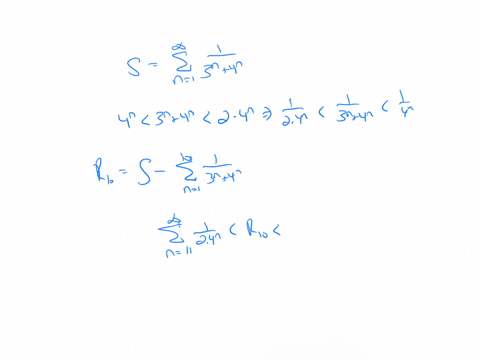 S = ∞∑n=1 1/(3ⁿ+4ⁿ)
4ⁿ < 3ⁿ+4ⁿ < 2·4ⁿ ⇒ 1/(2·4ⁿ) < 1/(3ⁿ+4ⁿ) < 1/4ⁿ
R₁₀ = S − 10∑n=1 1/(3ⁿ+4ⁿ)
∞∑n=11 1/(2·4ⁿ) < R₁₀ <